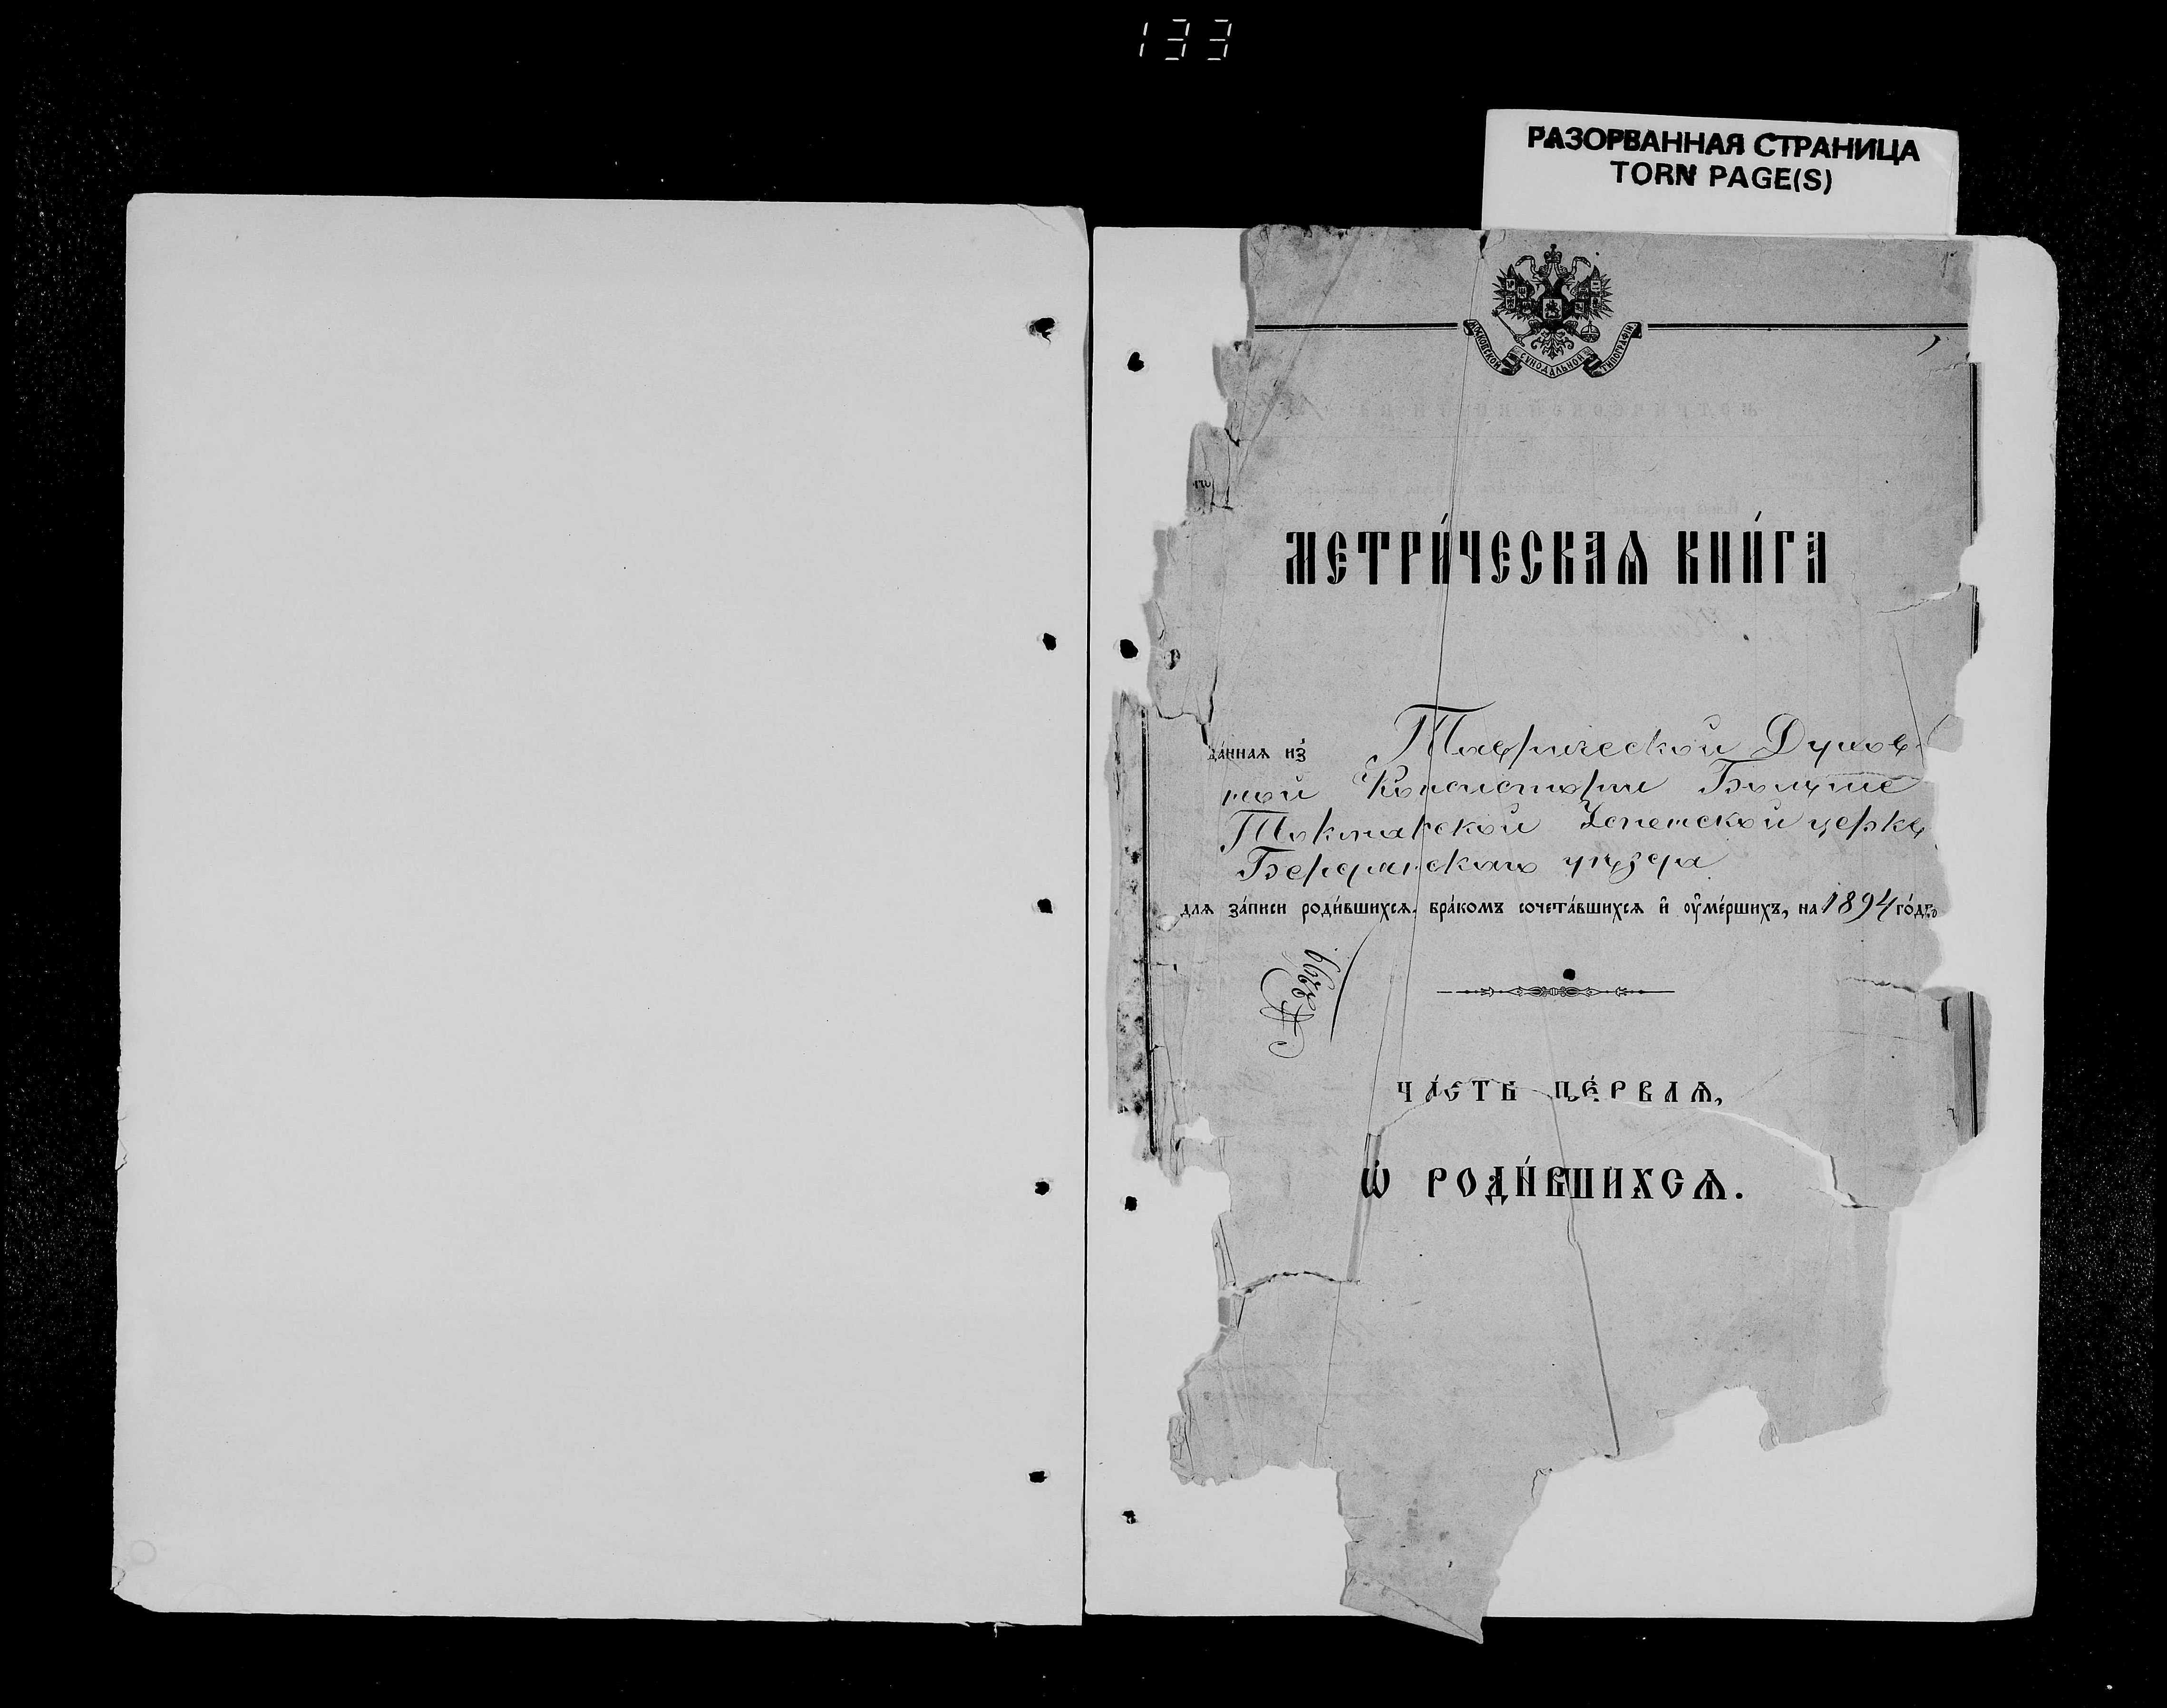 133
РАЗОРВАННАЯ СТРАНИЦА
TORN PAGE(S)
МОСКОВСКОЙ СѴНОДАЛЬНОЙ ТИПОГРАФІИ
МЕТРИ́ЧЕСКАѦ КНИ́ГА
да́ннаѧ из̾ Таврической Духов-
ной Консисторіи Больше
Токмакской Успенской церкв
Бердянскаго уѣзда
длѧ за́писи роди́вшихсѧ, бра́комъ сочета́вшихсѧ и҆ оу҆ме́ршихъ, на 1894 го́дъ
ЧА́СТЬ ПЕ́РВАѦ,
Ѡ҆ РОДИ́ВШИХСѦ.